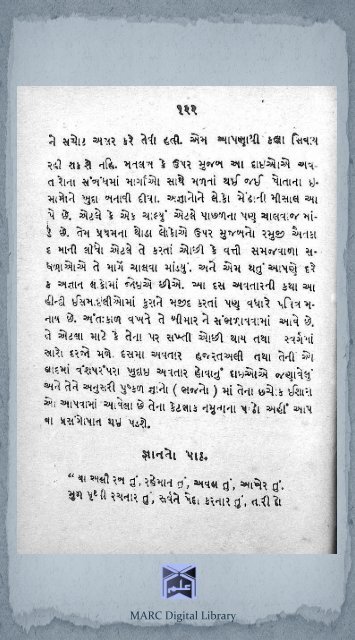 ૧૨૨
ને સચોટ અસર કરે તેવી હતી. એમ આપણાથી કહ્યા સિવાય
રહી શકાશે નહિ. મતલબ કે ઉપર મુજબ આ દાઇઓએ અવ
તારોના સંબંધમાં માર્ગીઓ સાથે મળતાં થઈ જઈ પોતાના ઇ-
મામોને ખુદા બનાવી દીધા. અજ્ઞાનોને લોકો મેંઢાની મીસાલ આ
પે છે, એટલે કે એક ચાલ્યું એટલે પાછળના પણ ચાલવાજ માં-
ડે છે. તેમ પ્રથમના થોડા લોકોએ ઉપર મુજબનો રમુજી એતકા
દ માની લીધો એટલે તે કરતાં ઓછી કે વત્તી સમજવાળા સ-
ઘળાઓએ તે માર્ગે ચાલવા માંડયું. અને એમ થતું આપણે દરે
ક અજ્ઞાન લોકોમાં જોઇએ છીએ. આ દસ અવતારની કથા આ
હીન્દી ઇસ્માઇલીઓમાં કુરાને મજીદ કરતાં પણ વધારે પવિત્ર મ-
નાય છે. અંતઃકાળ વખતે તે બીમારને સંભળાવવામાં આવે છે.
તે એટલા માટે કે તેના પર સખ્તી ઓછી થાય તથા સ્વર્ગમાં
સારો દરજો મળે. દસમા અવતાર હજરતઅલી તથા તેની ઓ
લાદમાં વંશપરંપરા ખુદાઇ અવતાર હોવાનું દાઇઓએ જણાવેલું
અને તેને અનુસરી પુષ્કળ જ્ઞાનો ( ભજનો ) માં તેના છચોક ઇશારા
ઓ આપવામાં આવેલા છે તેના કેટલાક નમુનાના પાઠો અહીં આપ
વા પ્રસંગોપાત થઇ પડશે.
જ્ઞાનનો પાઠ.
“ યા અલી રબ તું, રહેમાન તું, અવલ તું, આખેર તું.
તું, સર્વને પેદા કરનાર તું,
علم
MARC Digital Library